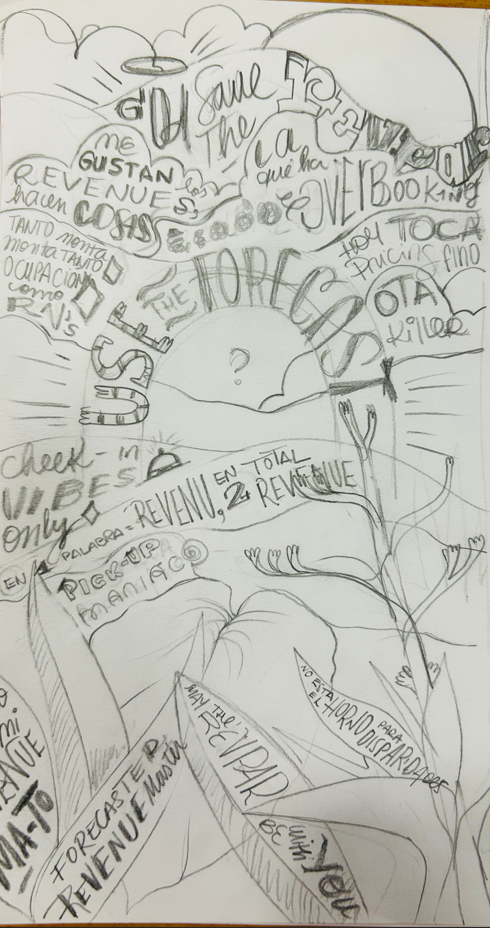 G'Od Save
The
me
GUSTAN los
REVENUES,
hacen COSAS
LA
que ha
OVERBOOKING
TANTO monta
monta TANTO
OCUPACION
como
RN's
HOY TOCA
Pricing fino
OTA
Killer
USE THE FORECAST
?
check-in
VIBES
only
EN 1 PALABRA = REVENU, EN 2 TOTAL REVENUE
PICK-UP
MANIAC
mi
MA-TO
FORECASTER
REVENUE Master
MAY the
REVPAR
BE with
YOU
NO ESTA
EL HORNO PARA
DISPARDADOES